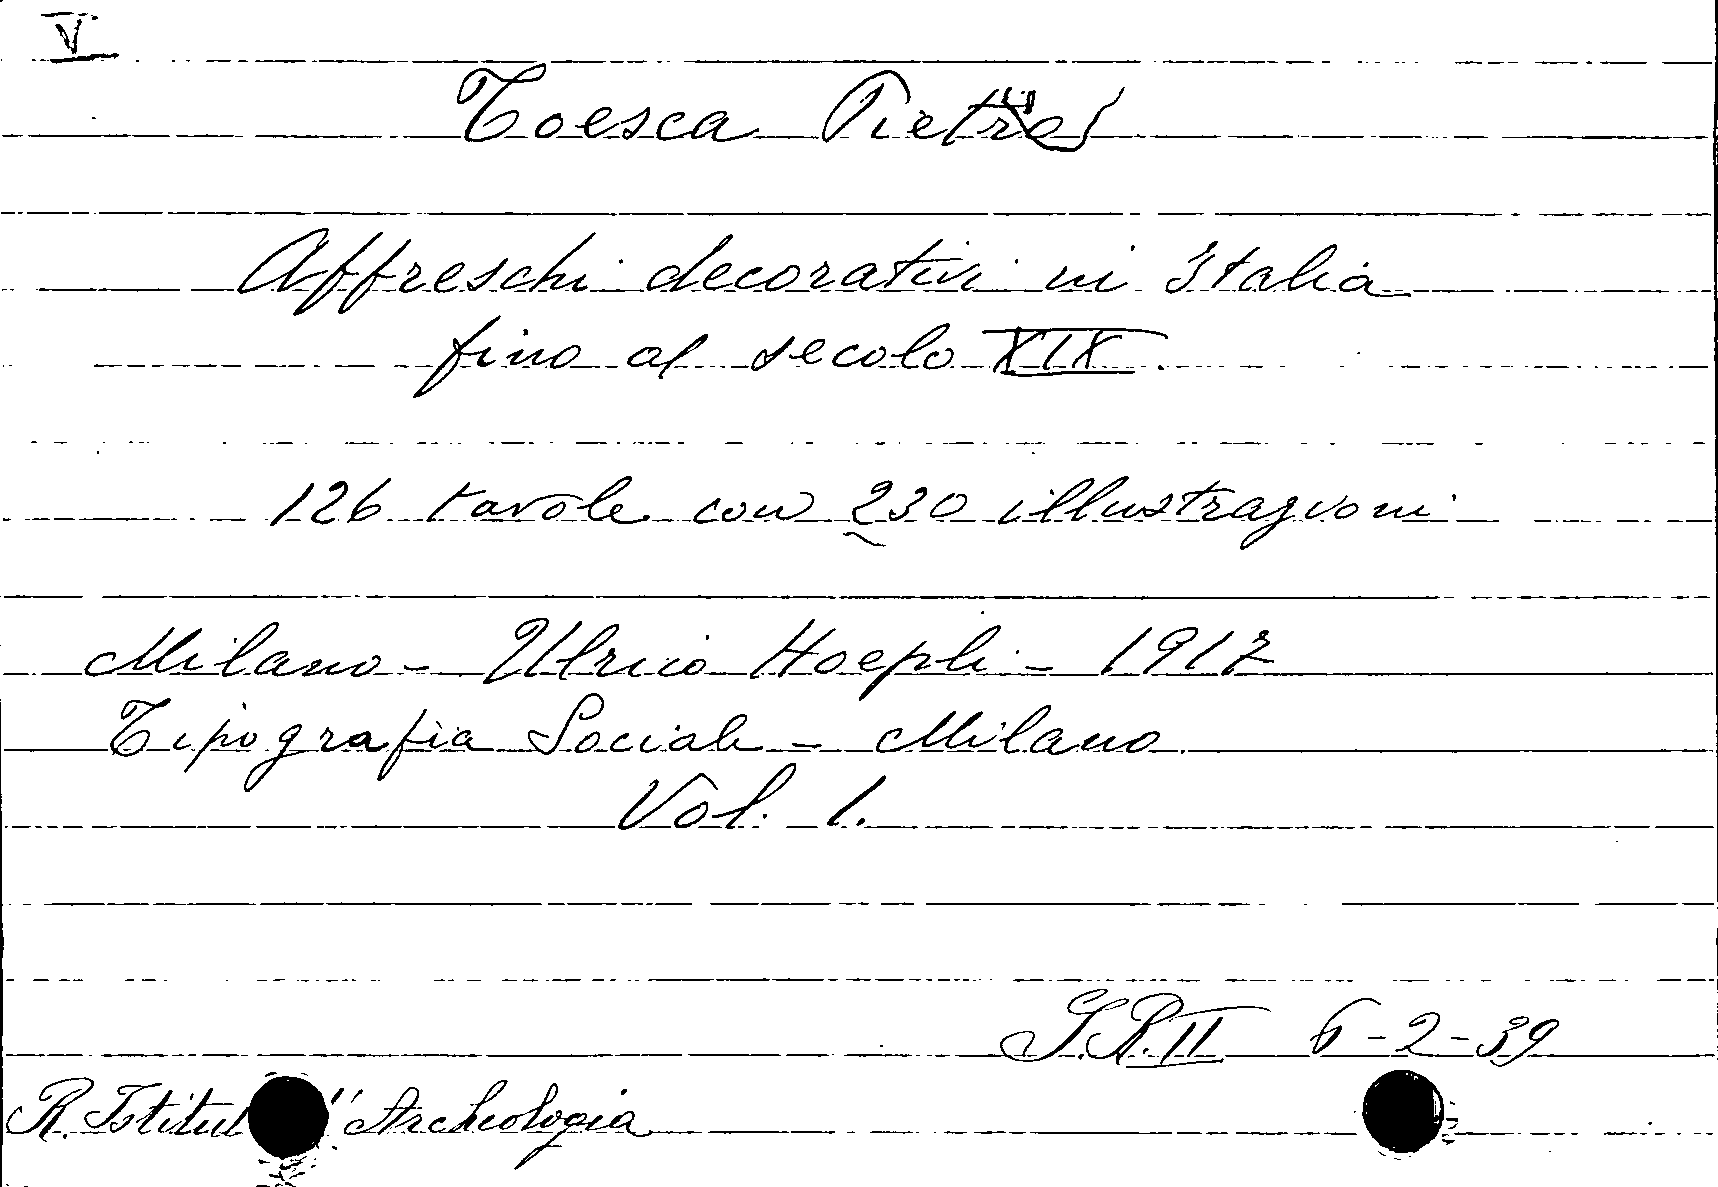 V
Toesca Pietro
Affreschi decorativi in Italia
fino al secolo XIX.
126 tavole con 230 illustrazioni
Milano - Ulrico Hoepli - 1917
Tipografia Sociale - Milano
Vol. 1.
S.R.II 6-2-39
R. Istitut Archeologia